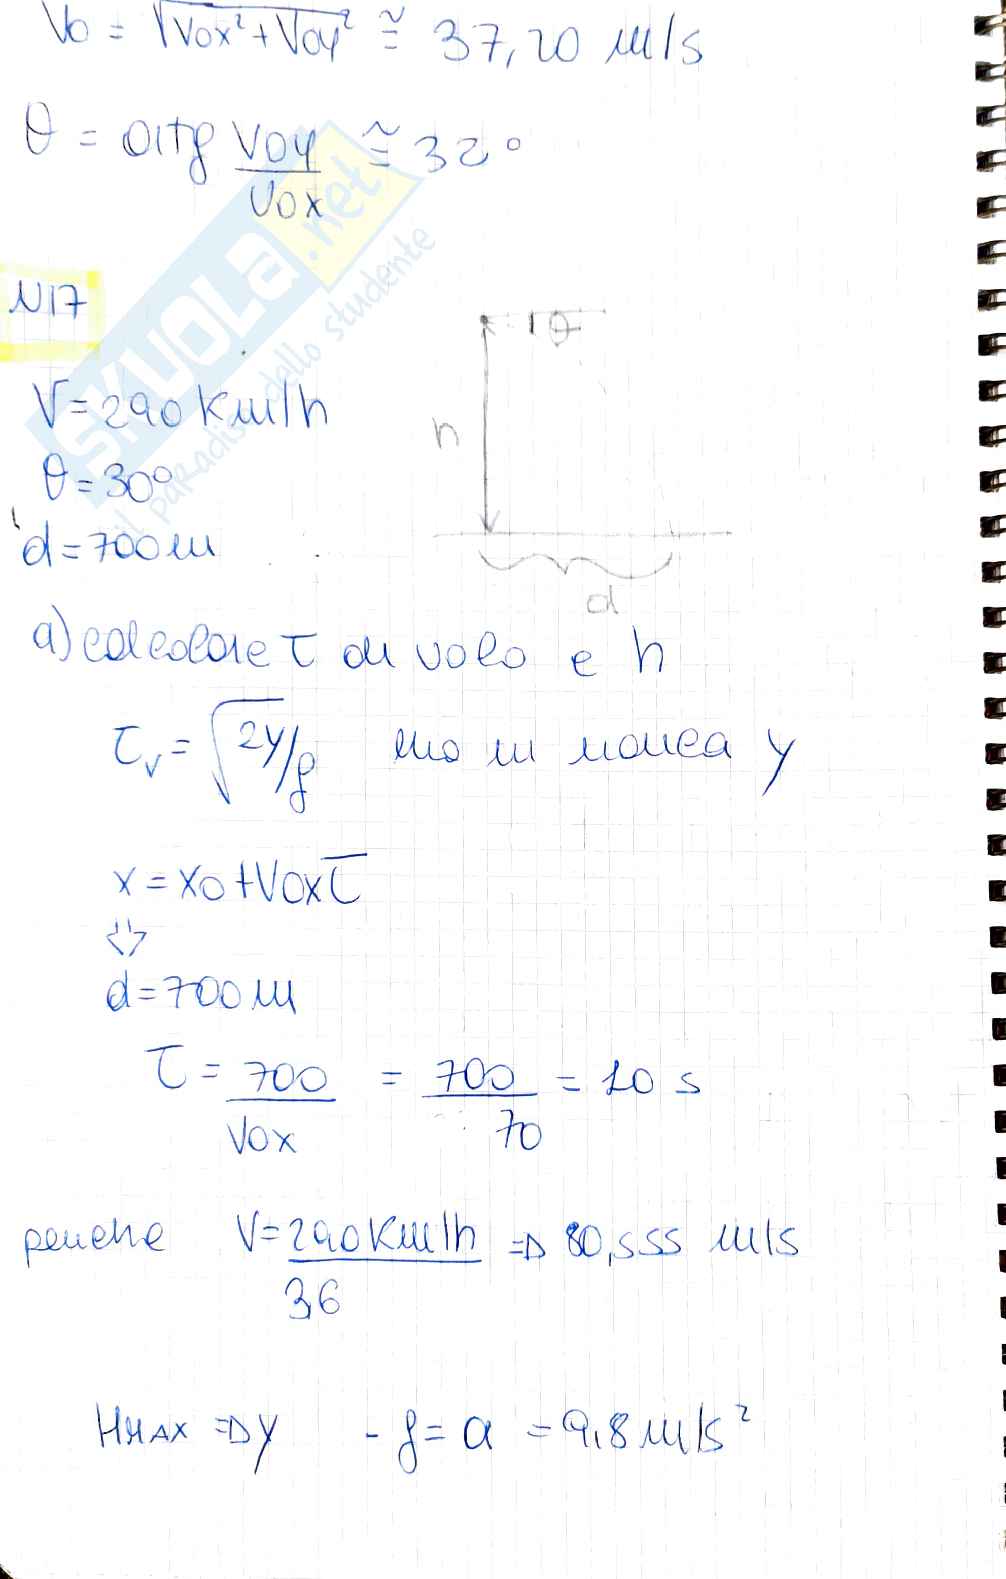 Vo = √Vox² + Voy² ≅ 37,20 m/s
θ = artg Voy/Vox ≅ 32°
SKUOLA.net
il paradiso dello studente
N17
θ
V = 290 Km/h
h
θ = 30°
d = 700 m
d
a) calcolare τ di volo e h
τv = √2y/g ma mi manca y
x = xo + Vox τ
d = 700 m
τ = 700/Vox = 700/70 = 10 s
perche V = 290 Km/h / 3,6 => 80,555 m/s
HMAX => y - g = a = 9,8 m/s²